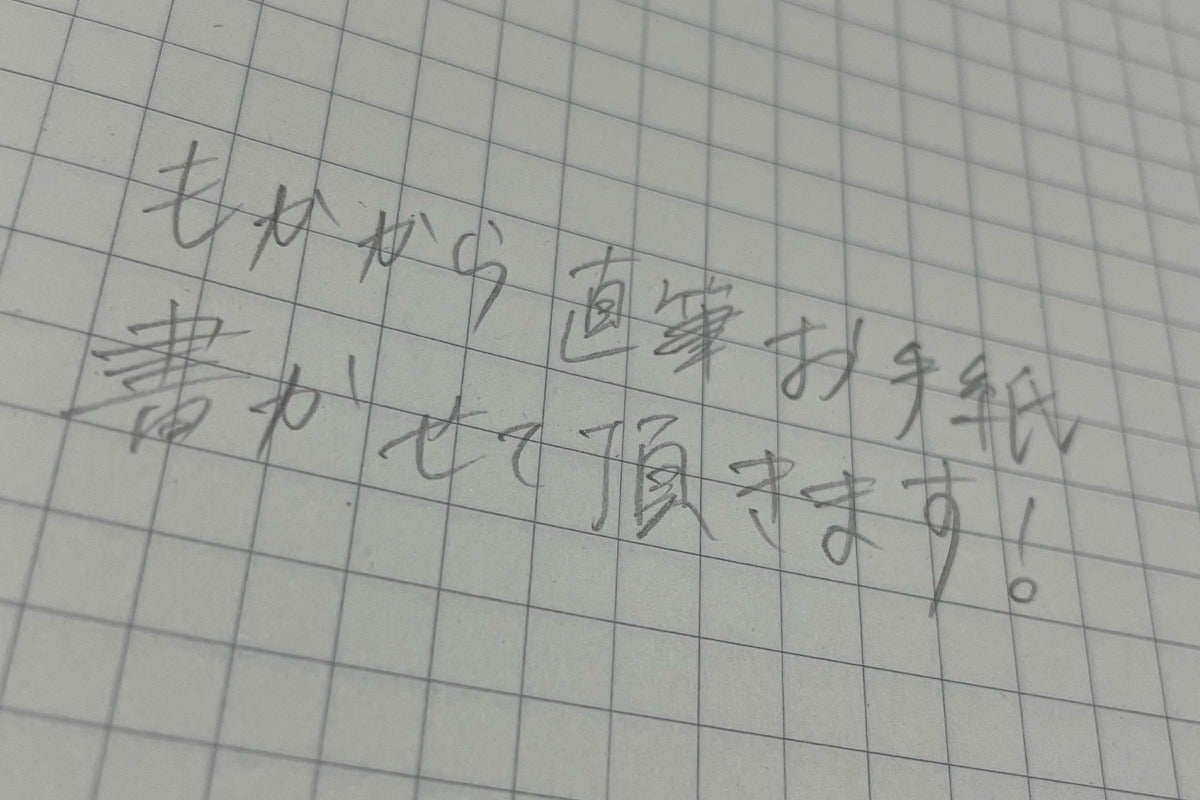 もかから直筆お手紙
書かせて頂きます!